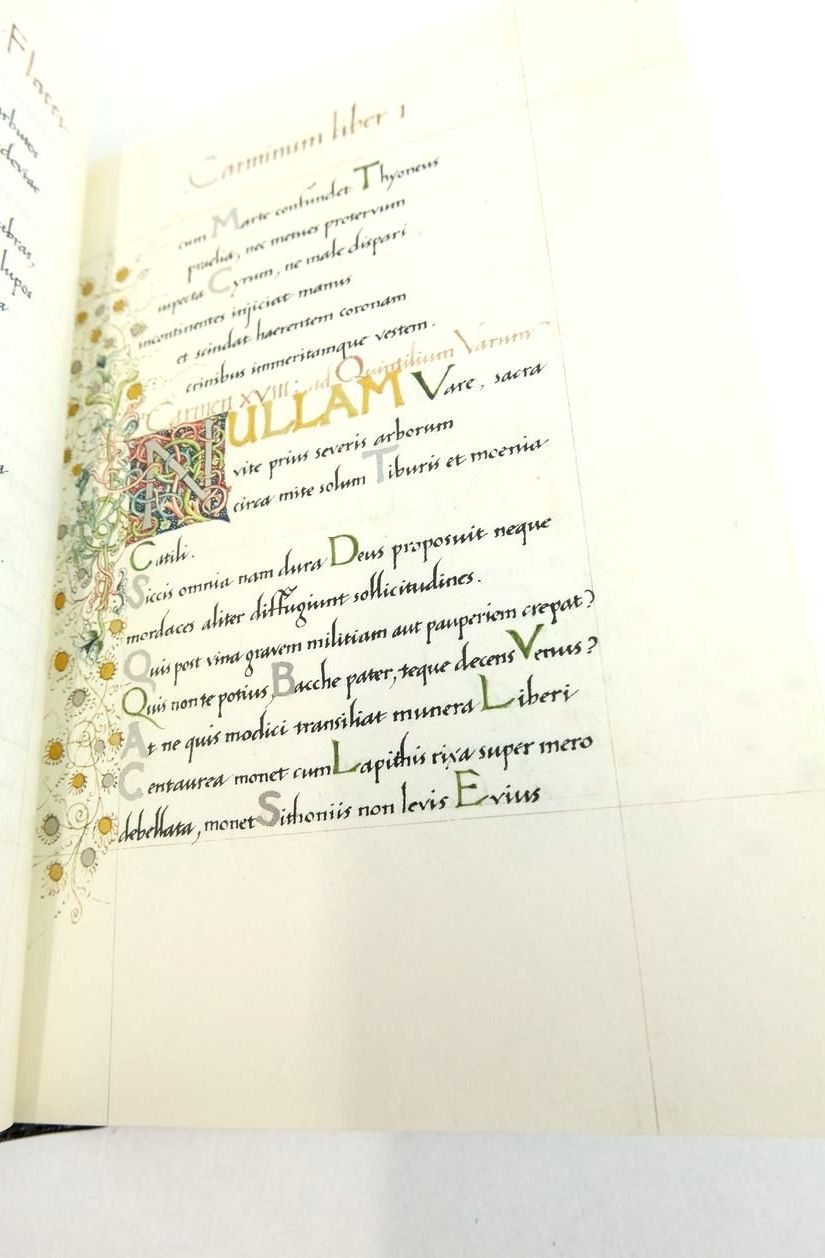 Flacci
arbutos
lupos
Carminum liber 1
cum Marte confundet Thyoneus
praelia, nec metues protervum
suspecta Cyrum, ne male dispari
incontinentes injiciat manus
et scindat haerentem coronam
crinibus immeritamque vestem.
Carmen XVIII: ad Quintilium Varum
NULLAM Vare, sacra
vite prius severis arborum
circa mite solum Tiburis et moenia
Catili.
Siccis omnia nam dura Deus proposuit neque
mordaces aliter diffugiunt sollicitudines.
Quis post vina gravem militiam aut pauperiem crepat?
Quis non te potius Bacche pater, teque decens Venus?
At ne quis modici transiliat munera Liberi
Centaurea monet cum Lapithis rixa super mero
debellata, monet Sithoniis non levis Evius